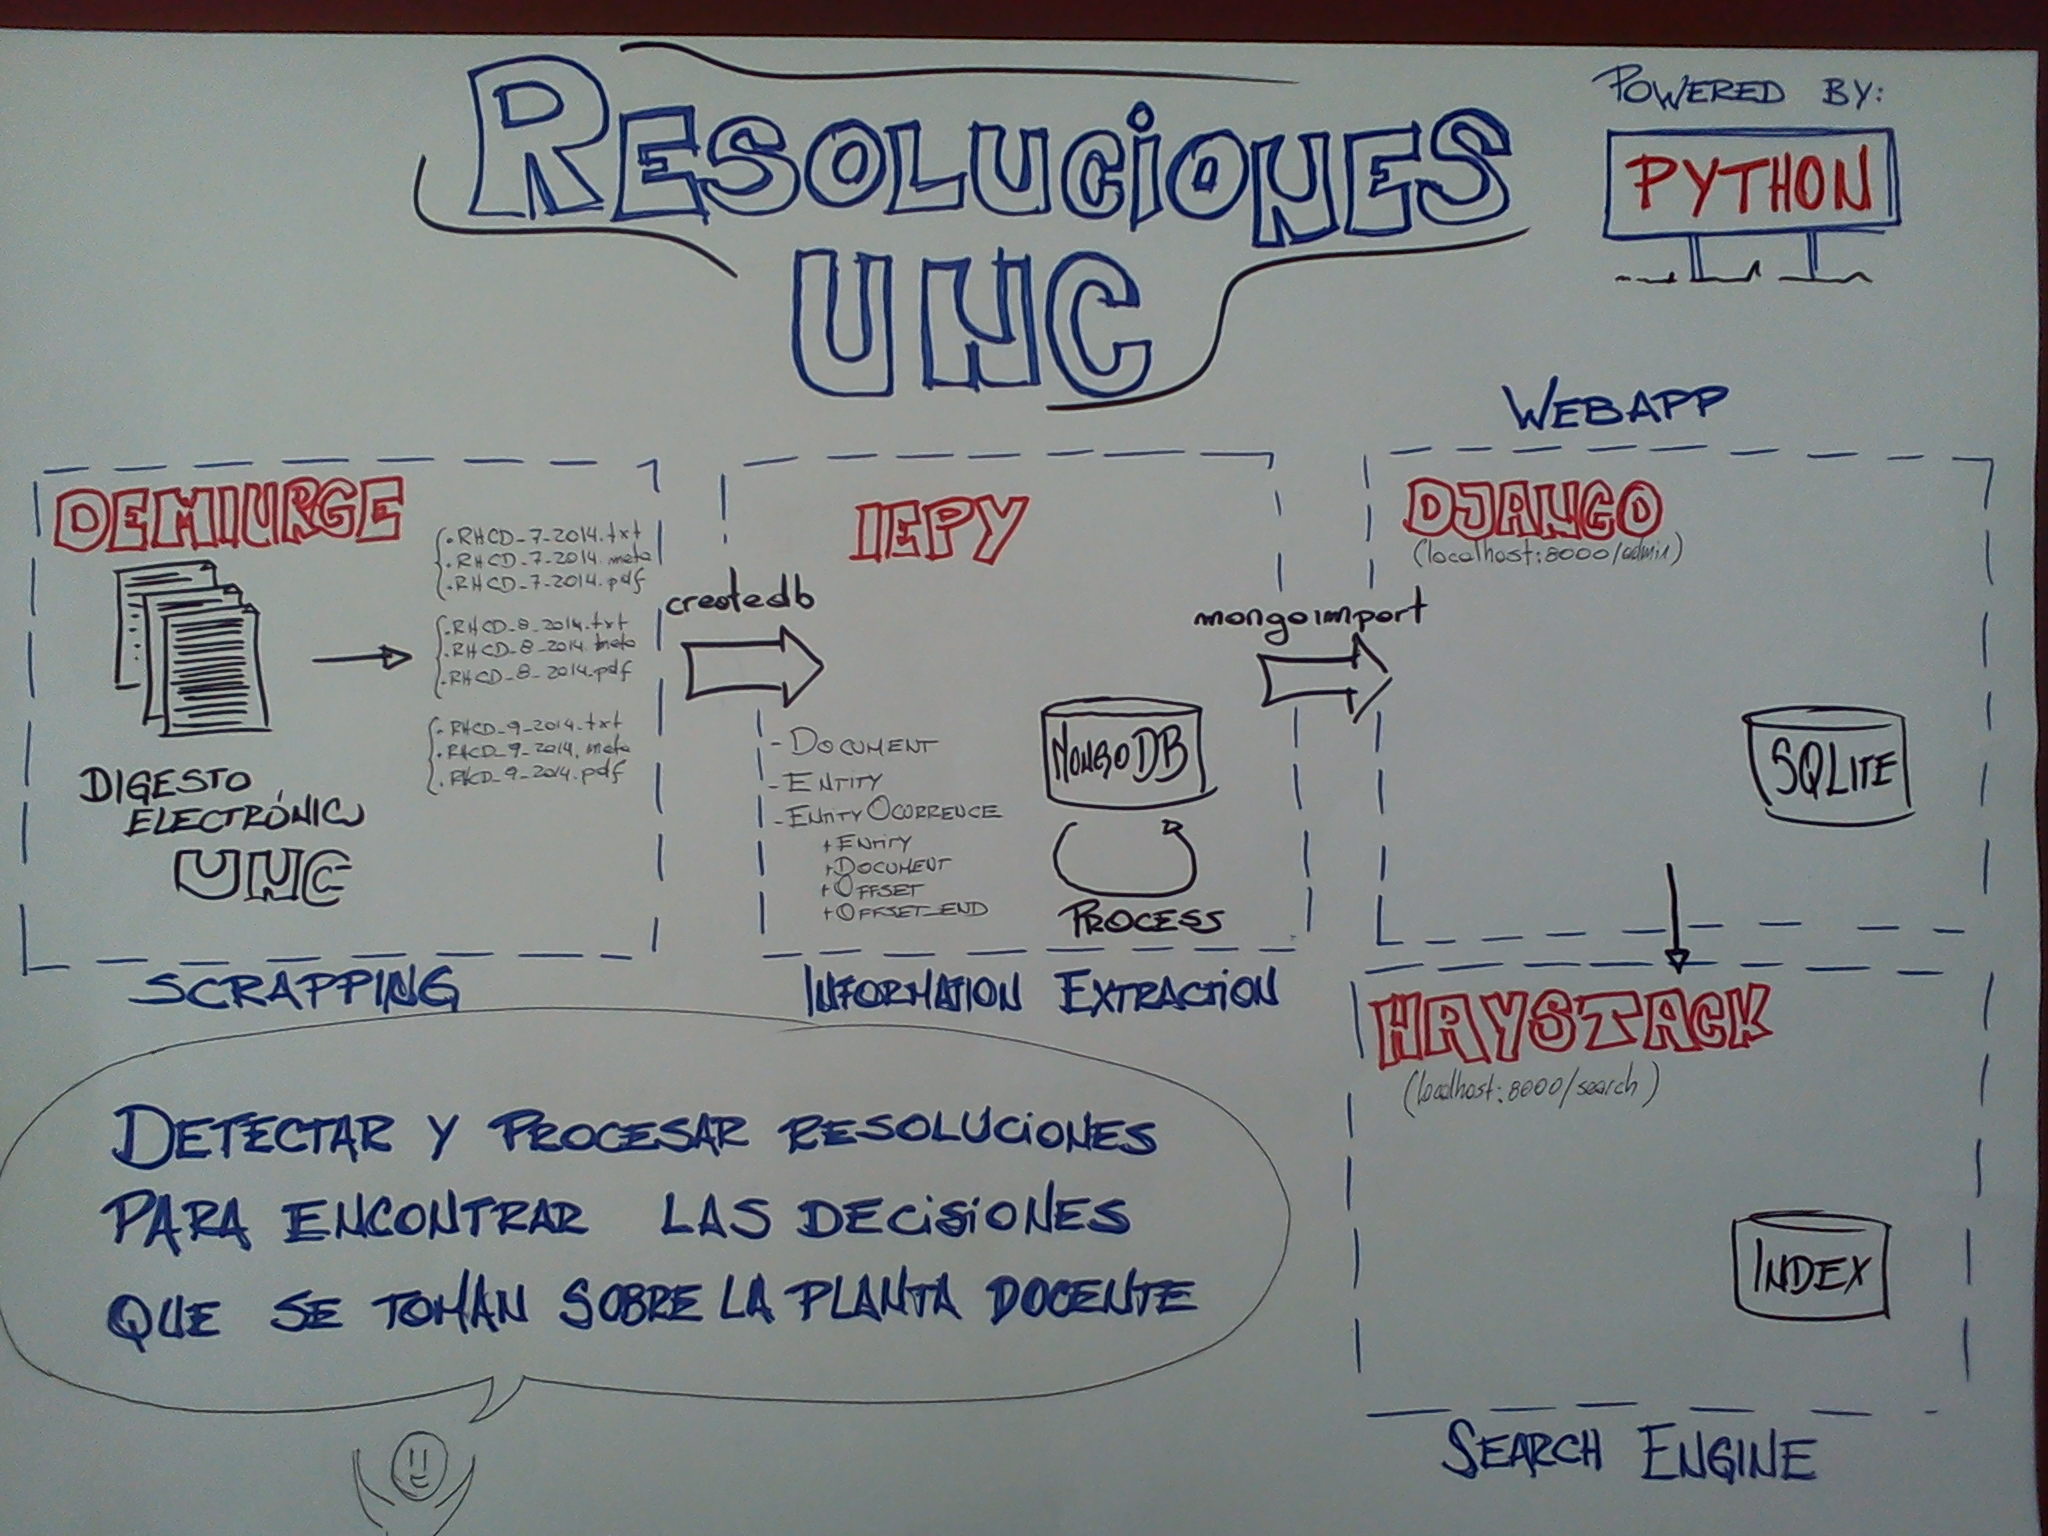 RESOLUCIONES
UNC
POWERED BY:
PYTHON
WEBAPP
DEMIURGE
.RHCD_7_2014.txt
.RHCD_7_2014.meta
.RHCD_7_2014.pdf
.RHCD_8_2014.txt
.RHCD_8_2014.meta
.RHCD_8_2014.pdf
.RHCD_9_2014.txt
.RHCD_9_2014.meta
.RHCD_9_2014.pdf
DIGESTO
ELECTRÓNICO
UNC
SCRAPPING
createdb
IEPY
- DOCUMENT
- ENTITY
- ENTITY OCURRENCE
+ ENTITY
+ DOCUMENT
+ OFFSET
+ OFFSET_END
MONGODB
PROCESS
INFORMATION EXTRACTION
mongoimport
DJANGO
(localhost:8000/admin)
SQLITE
HAYSTACK
(localhost:8000/search)
INDEX
SEARCH ENGINE
DETECTAR Y PROCESAR RESOLUCIONES
PARA ENCONTRAR LAS DECISIONES
QUE SE TOMAN SOBRE LA PLANTA DOCENTE